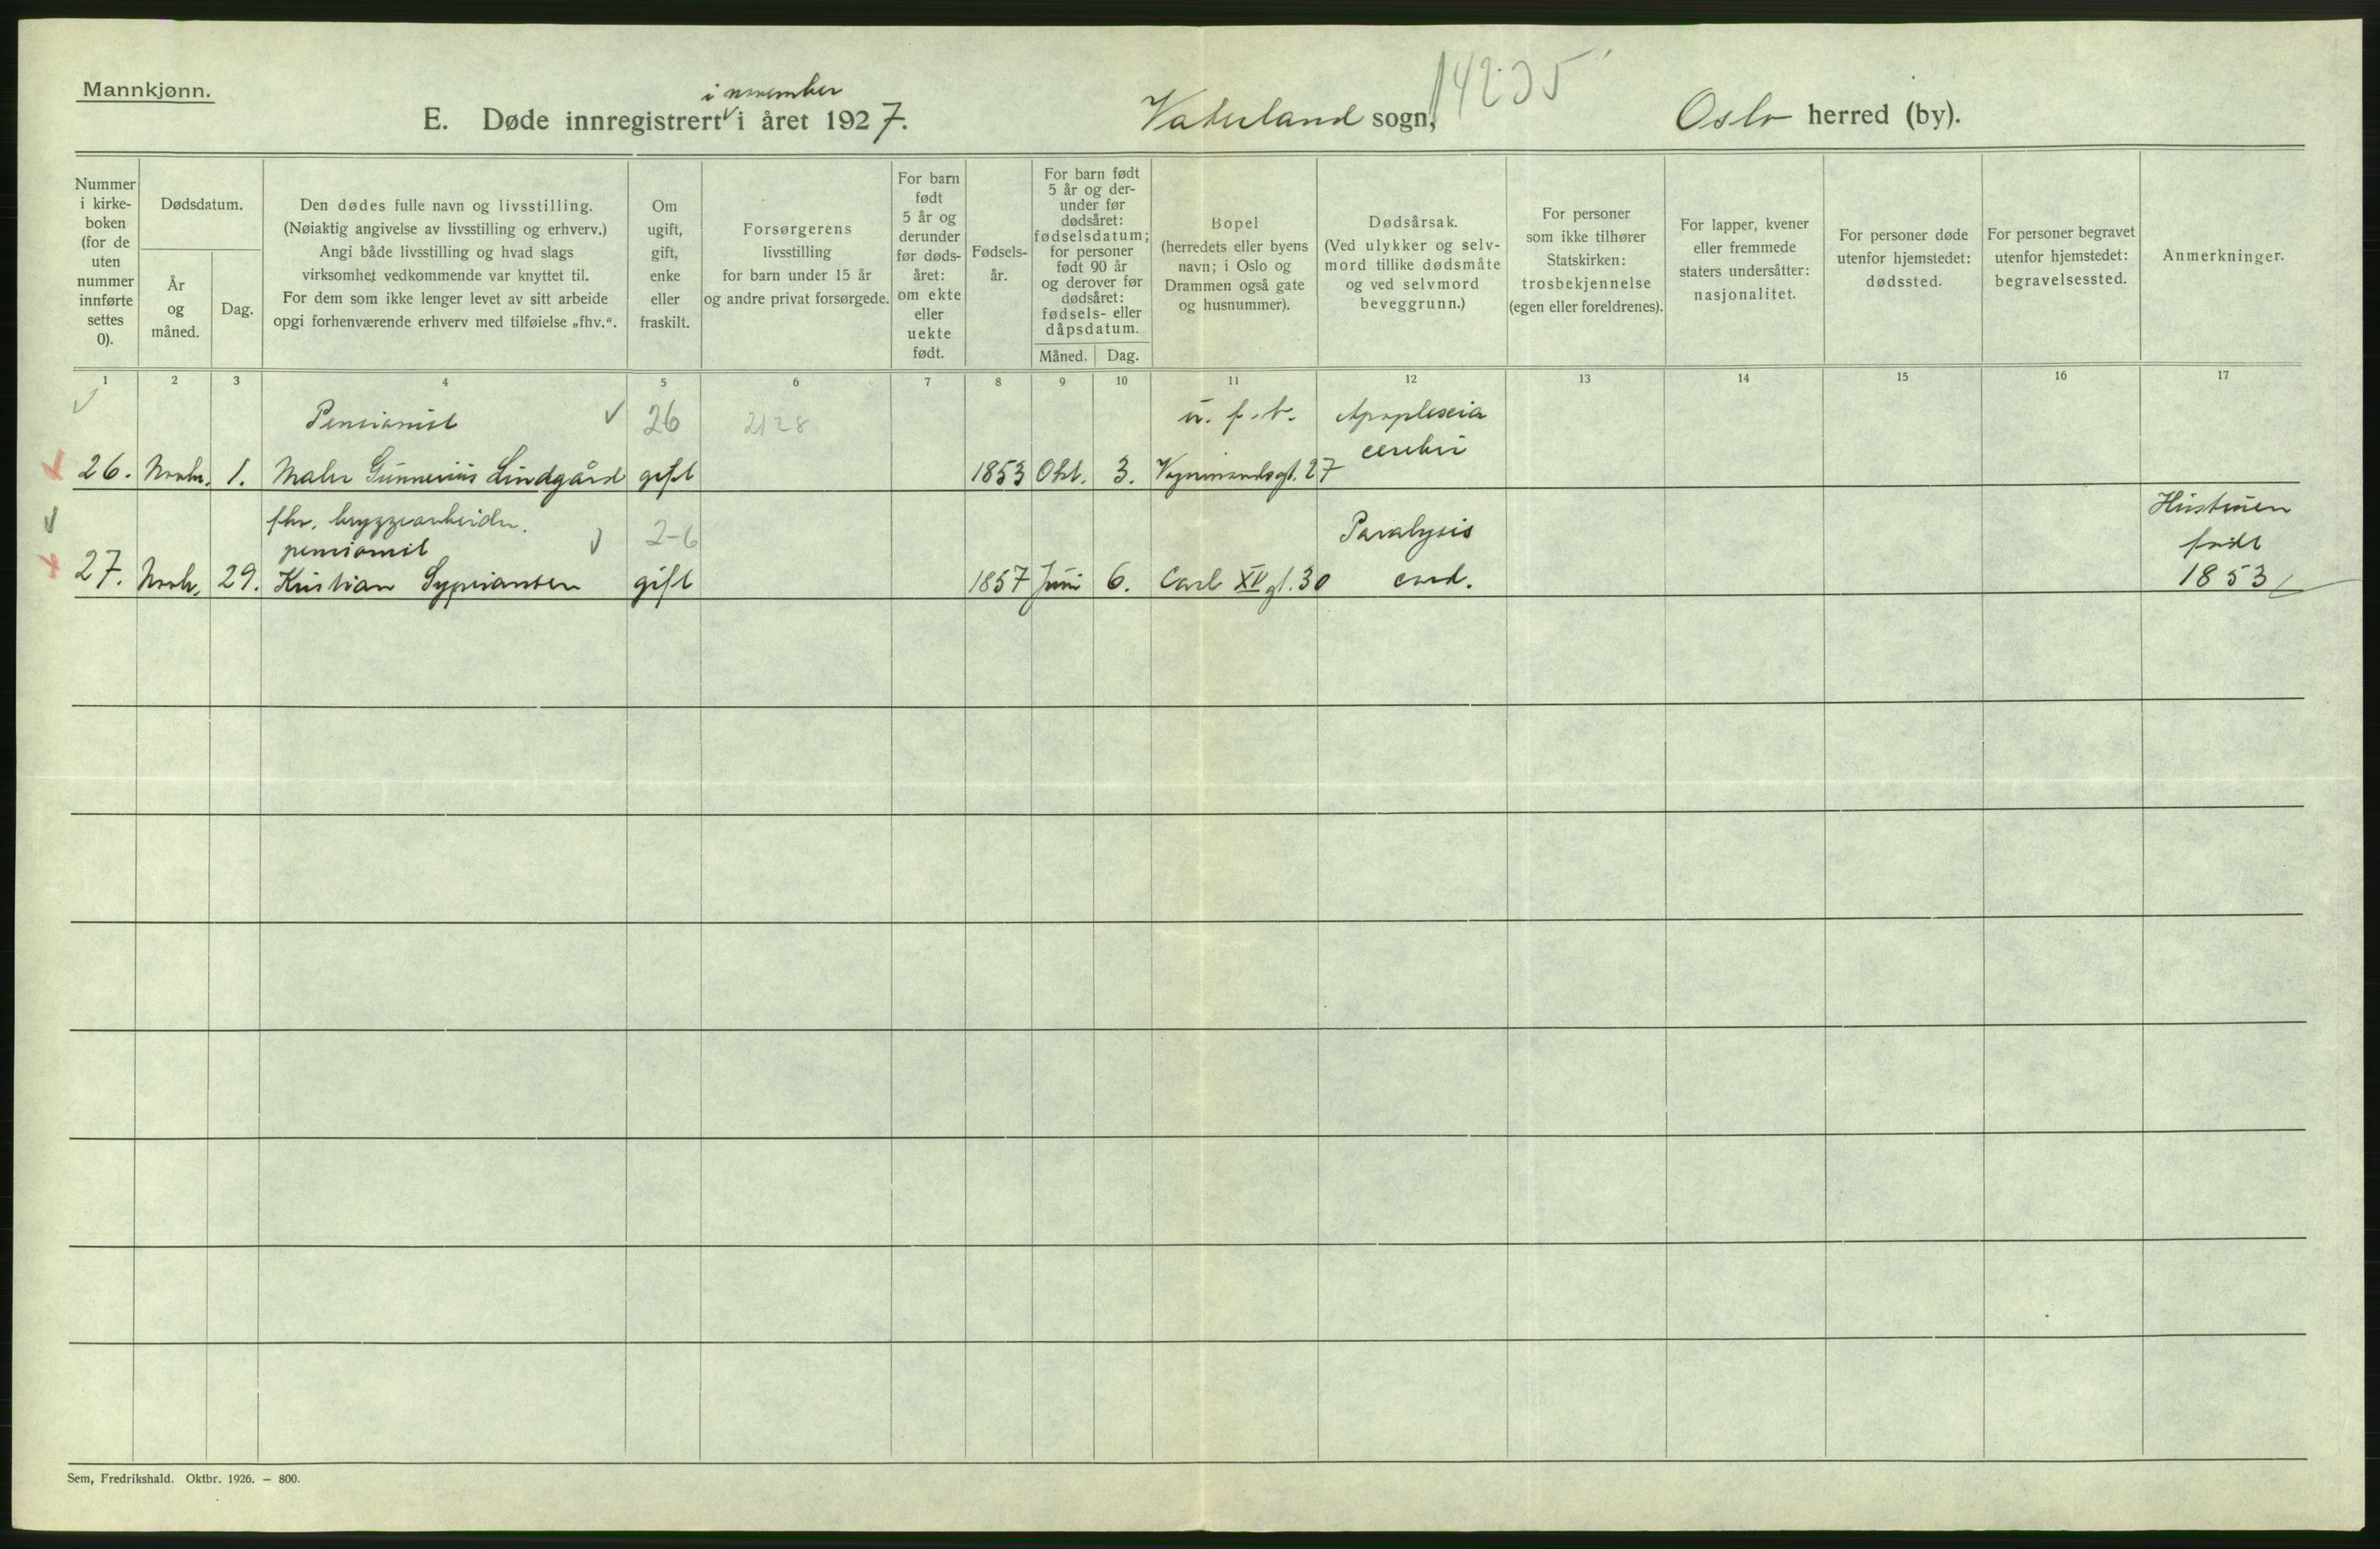 Mannkjønn.
i november
E. Døde innregistrert i året 1927.
Vaterland sogn,
14235
Oslo herred (by).
Nummer
i kirke-
boken
(for de
uten
nummer
innførte
settes
0).
Dødsdatum.
År
og
måned.
Dag.
Den dødes fulle navn og livsstilling.
(Nøiaktig angivelse av livsstilling og erhverv.)
Angi både livsstilling og hvad slags
virksomhet vedkommende var knyttet til.
For dem som ikke lenger levet av sitt arbeide
opgi forhenværende erhverv med tilføielse „fhv.“.
Om
ugift,
gift,
enke
eller
fraskilt.
Forsørgerens
livsstilling
for barn under 15 år
og andre privat forsørgede.
For barn
født
5 år og
derunder
før døds-
året:
om ekte
eller
uekte
født.
Fødsels-
år.
For barn født
5 år og der-
under før
dødsåret:
fødselsdatum;
for personer
født 90 år
og derover før
dødsåret:
fødsels- eller
dåpsdatum.
Måned. Dag.
Bopel
(herredets eller byens
navn; i Oslo og
Drammen også gate
og husnummer).
Dødsårsak.
(Ved ulykker og selv-
mord tillike dødsmåte
og ved selvmord
beveggrunn.)
For personer
som ikke tilhører
Statskirken:
trosbekjennelse
(egen eller foreldrenes).
For lapper, kvener
eller fremmede
staters undersåtter:
nasjonalitet.
For personer døde
utenfor hjemstedet:
dødssted.
For personer begravet
utenfor hjemstedet:
begravelsessted.
Anmerkninger.
1 2 3 4 5 6 7 8 9 10 11 12 13 14 15 16 17
Pensionist 26 2128 u. f. b. Apoplexia
cerebri
26. Novbr. 1. Maler Gunnerius Lindgård gift 1853 Okt. 3. 27
fhv. bryggearbeider.
pensionist 2-6 Paralysis
27. Novb. 29. Kristian Sypriansen gift 1857 Juni 6. Carl XV gt. 30 cord.
Hustruen
født
1853
Sem, Fredrikshald. Oktbr. 1926. — 800.